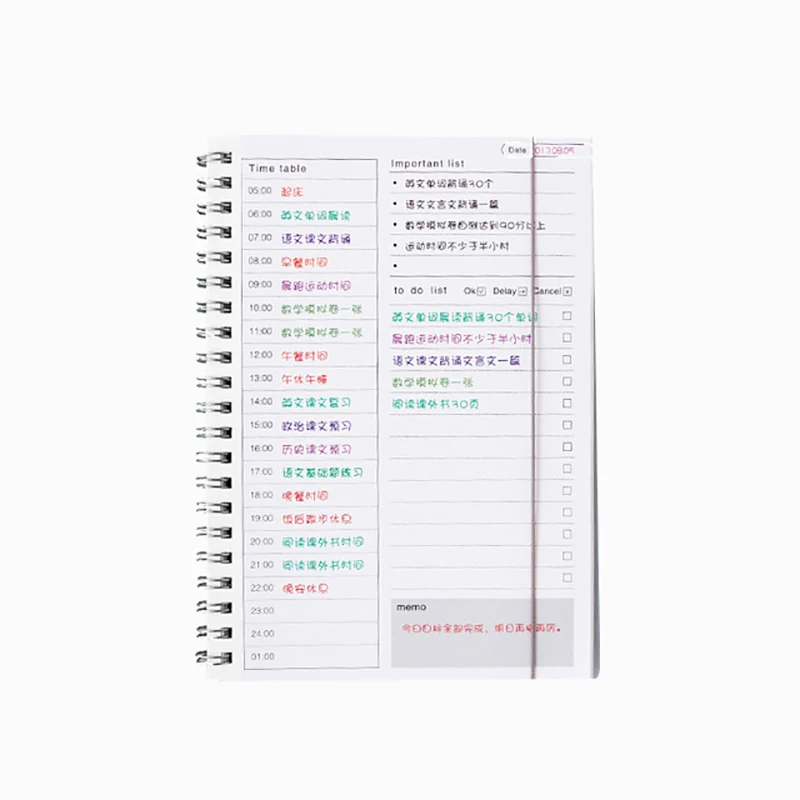 Date: 0130809
Time table
05:00 起床
06:00 英文单词晨读
07:00 语文课文背诵
08:00 早餐时间
09:00 晨跑运动时间
10:00 数学模拟卷一张
11:00 数学模拟卷一张
12:00 午餐时间
13:00 午休午睡
14:00 英文课文复习
15:00 政治课文预习
16:00 历史课文预习
17:00 语文基础题练习
18:00 晚餐时间
19:00 饭后散步休息
20:00 阅读课外书时间
21:00 阅读课外书时间
22:00 晚安休息
23:00
24:00
01:00
Important list
• 英文单词背诵30个
• 语文文言文背诵一篇
• 数学模拟卷自测达到90分以上
• 运动时间不少于半小时
•
to do list Ok Delay Cancel
英文单词晨读背诵30个单词
晨跑运动时间不少于半小时
语文课文背诵文言文一篇
数学模拟卷一张
阅读课外书30页
memo
今日目标全部完成，明日再接再厉。